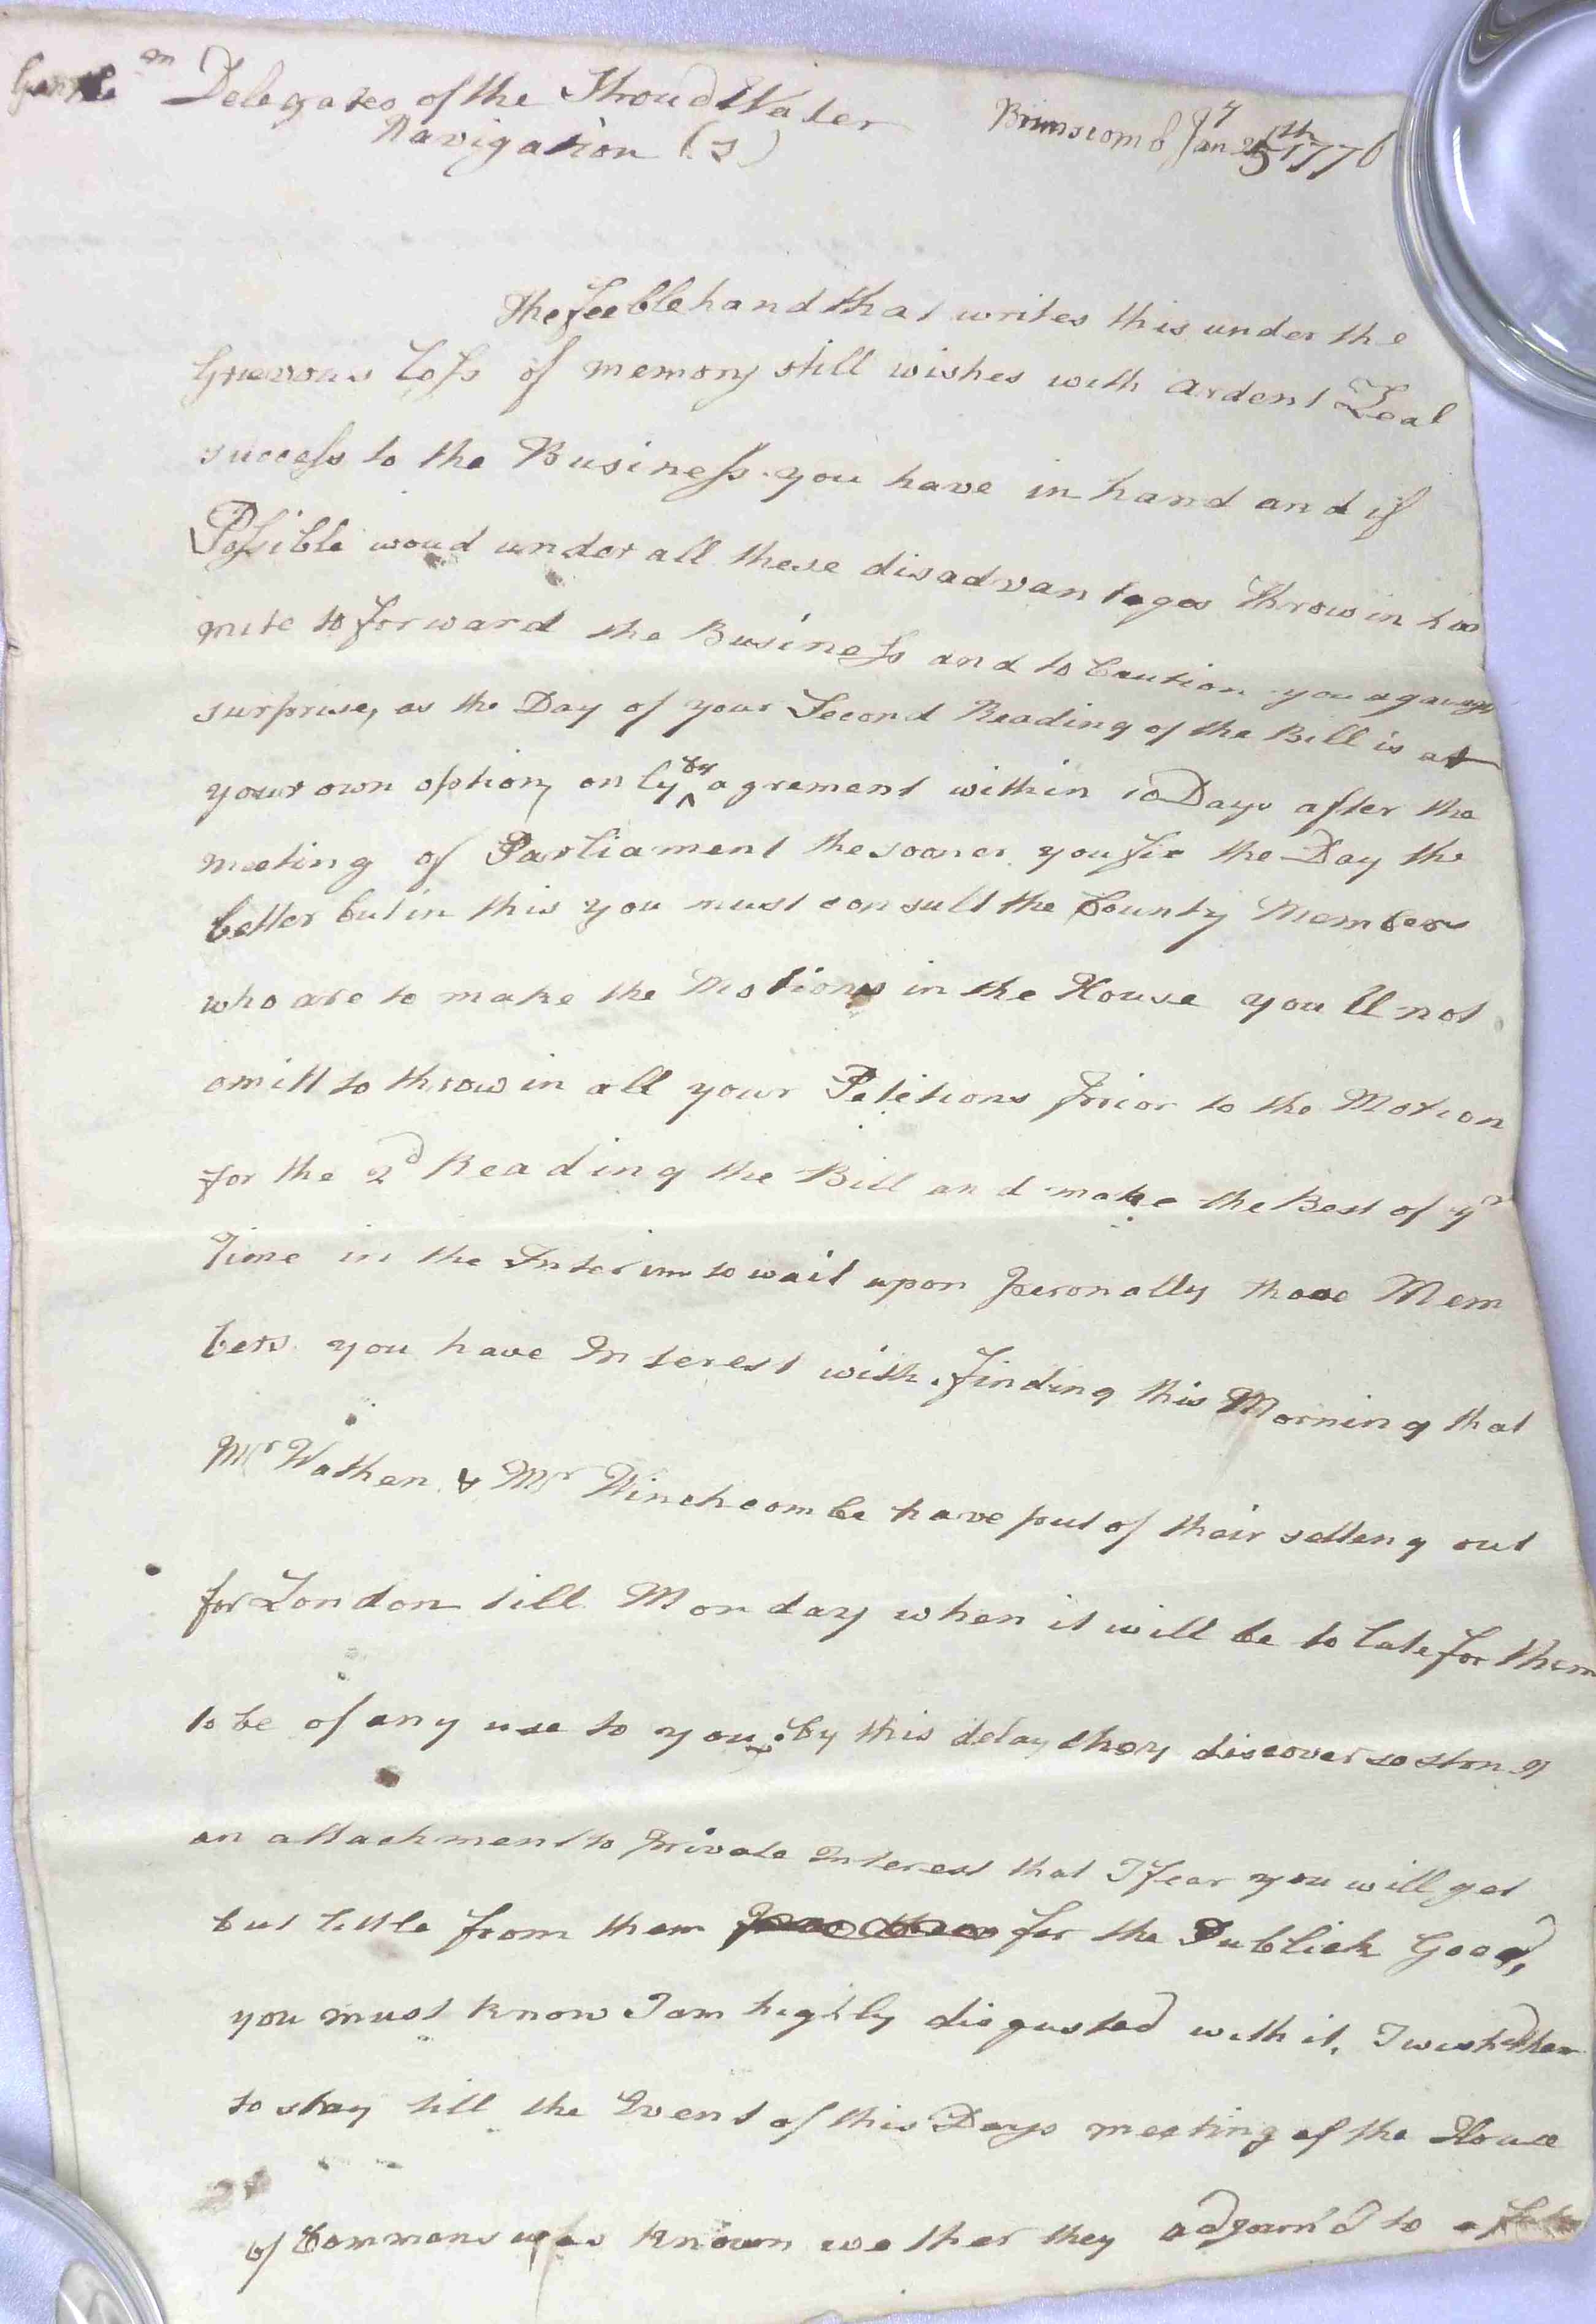 Gentle^m^n Delegates of the Stroud Water
Navigation (s)
Brimscomb Jan^y 25^th 1776
The feeble hand that writes this under the
Grievous Loss of memory still wishes with ardent Zeal
success to the Business you have in hand and if
Possible woud under all these disadvantages throw in his
mite to forward the Business and to Caution you against
surprise, as the Day of your Second Reading of the Bill is at
your own option, only ^by agrement within 10 Days after the
meeting of Parliament the sooner you fix the Day the
better but in this you must consult the County Members
who are to make the Motions in the House you'll not
omitt to throw in all your Petitions prior to the Motion
for the 2^d Reading the Bill and make the Best of y^r
Time in the Interim to wait upon personally those Mem
bers you have Interest with. finding this Morning that
M^r Wathen & M^r Winchcombe have put of their setteng out
for London till Monday when it will be to late for them
to be of any use to you. by this delay they discover so strong
an attachment to private Interest that I fear you will get
but little from them for the Publick Good,
you must know I am highly disgusted with it, I wish'd them
to stay till the Event of this Days meeting of the House
of Commons was known wether they adjourn'd to a